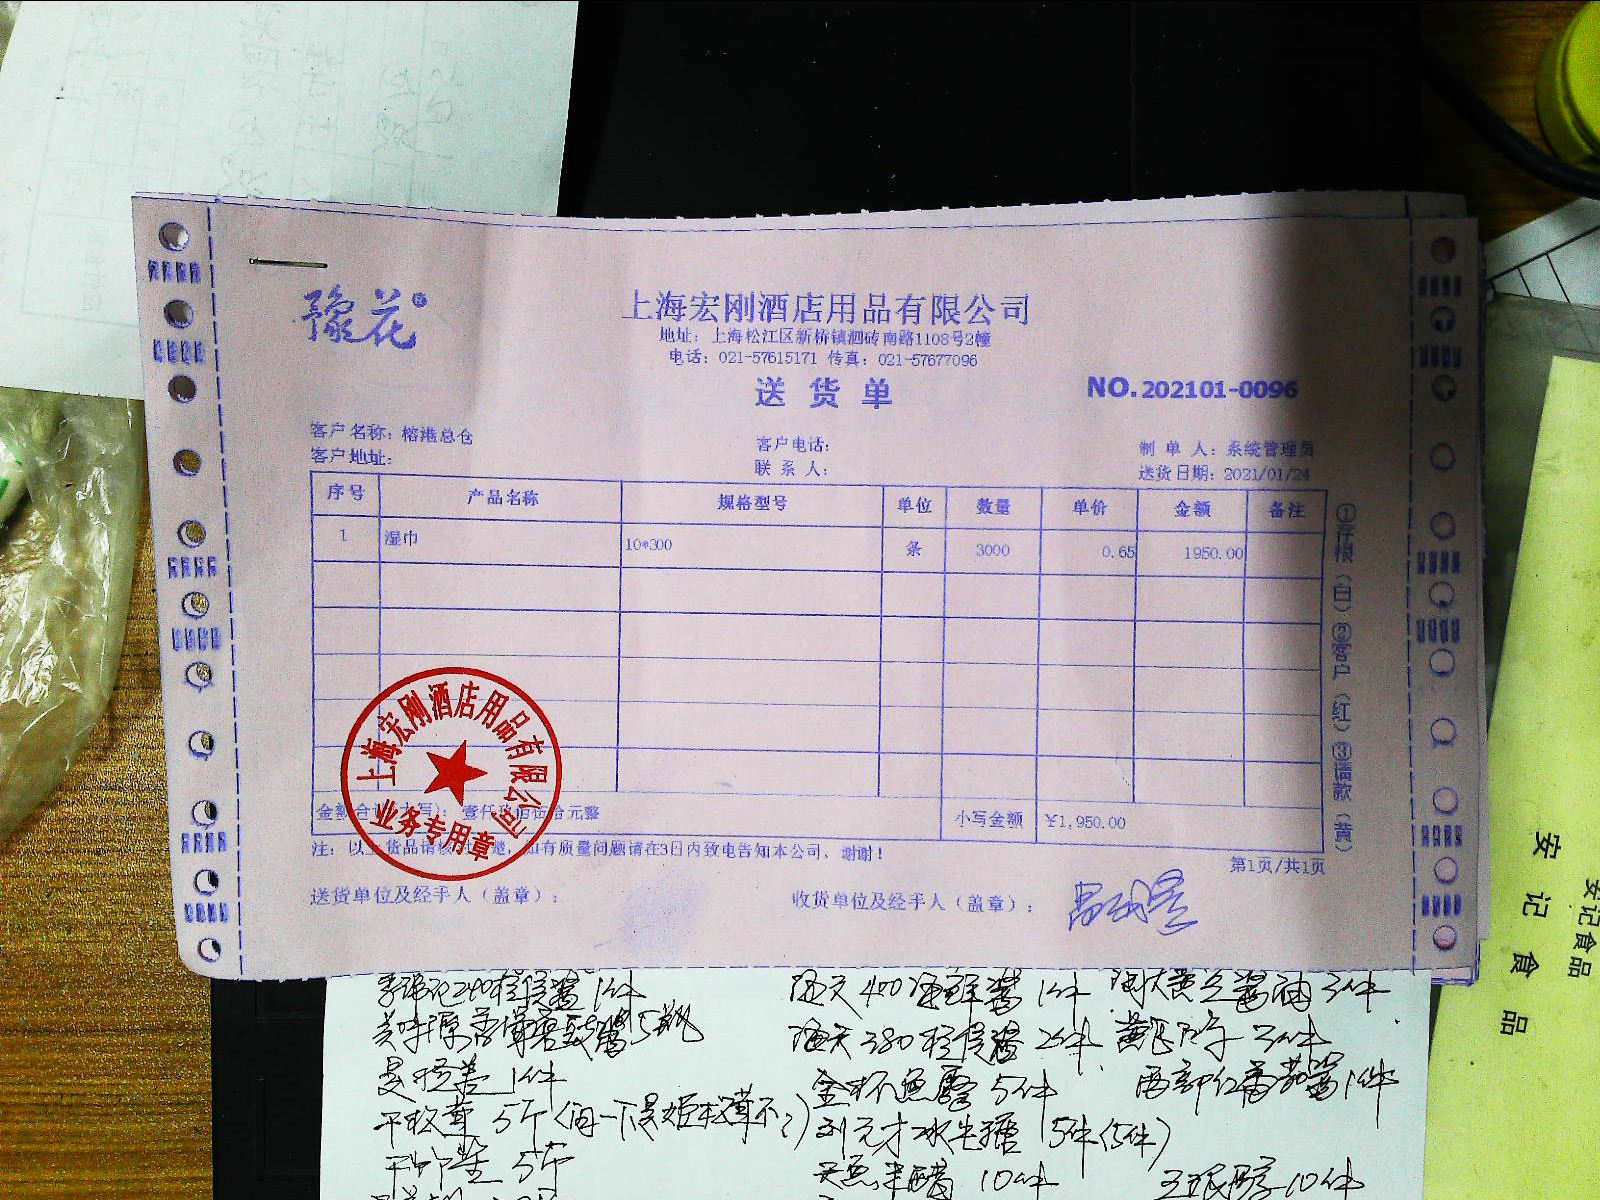 豫花®
上海宏刚酒店用品有限公司
地址：上海松江区新桥镇泗砖南路1108号2幢
电话：021-57615171 传真：021-57677096
送货单
NO.202101-0096
客户名称：榕港总仓
客户电话：
制单人：系统管理员
客户地址：
联系人：
送货日期：2021/01/24
序号 产品名称 规格型号 单位 数量 单价 金额 备注
1 湿巾 10*300 条 3000 0.65 1950.00
金额合计(大写)： 壹仟玖佰伍拾元整 小写金额 ¥1,950.00
注：以上货品请核 ，如有质量问题请在3日内致电告知本公司，谢谢！
第1页/共1页
送货单位及经手人（盖章）：
收货单位及经手人（盖章）：
①存根（白）②客户（红）③请款（黄）
上海宏刚酒店用品有限公司
业务专用章
1件
海天400海鲜酱 1件
黄豆酱油 3件
5瓶
海天380 2件
1件
金杯鱼露 5件
西部红番茄酱 1件
5斤
冰片糖 5件(5件)
5斤
10件
10件
安记食品
安记食品